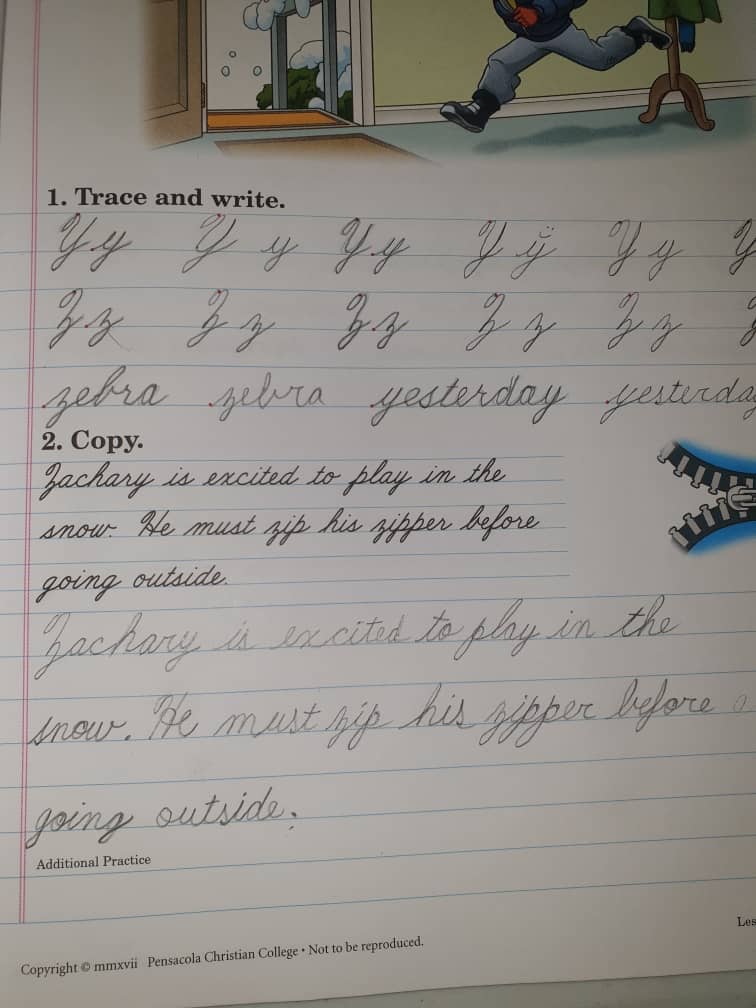 1. Trace and write.
Yy Y y Yy Y ÿ Y y Y
Zz Z z Zz Z z Z z
zebra zebra yesterday
2. Copy.
Zachary is excited to play in the
snow. He must zip his zipper before
going outside.
Zachary is excited to play in the
snow. He must zip his zipper before
going outside.
Additional Practice
Copyright © mmxvii Pensacola Christian College • Not to be reproduced.